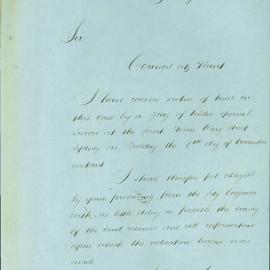 Sir
Council ats Hunt
I have received notice of trial in
this case by a Jury of twelve special
Jurors at the Court House King Street
Sydney on Tuesday the 9th day of November
instant
I should therefore feel obliged
by your procuring from the City Engineer
with as little delay as possible the survey
of the land claimed and all information
upon which the valuation herein was
made